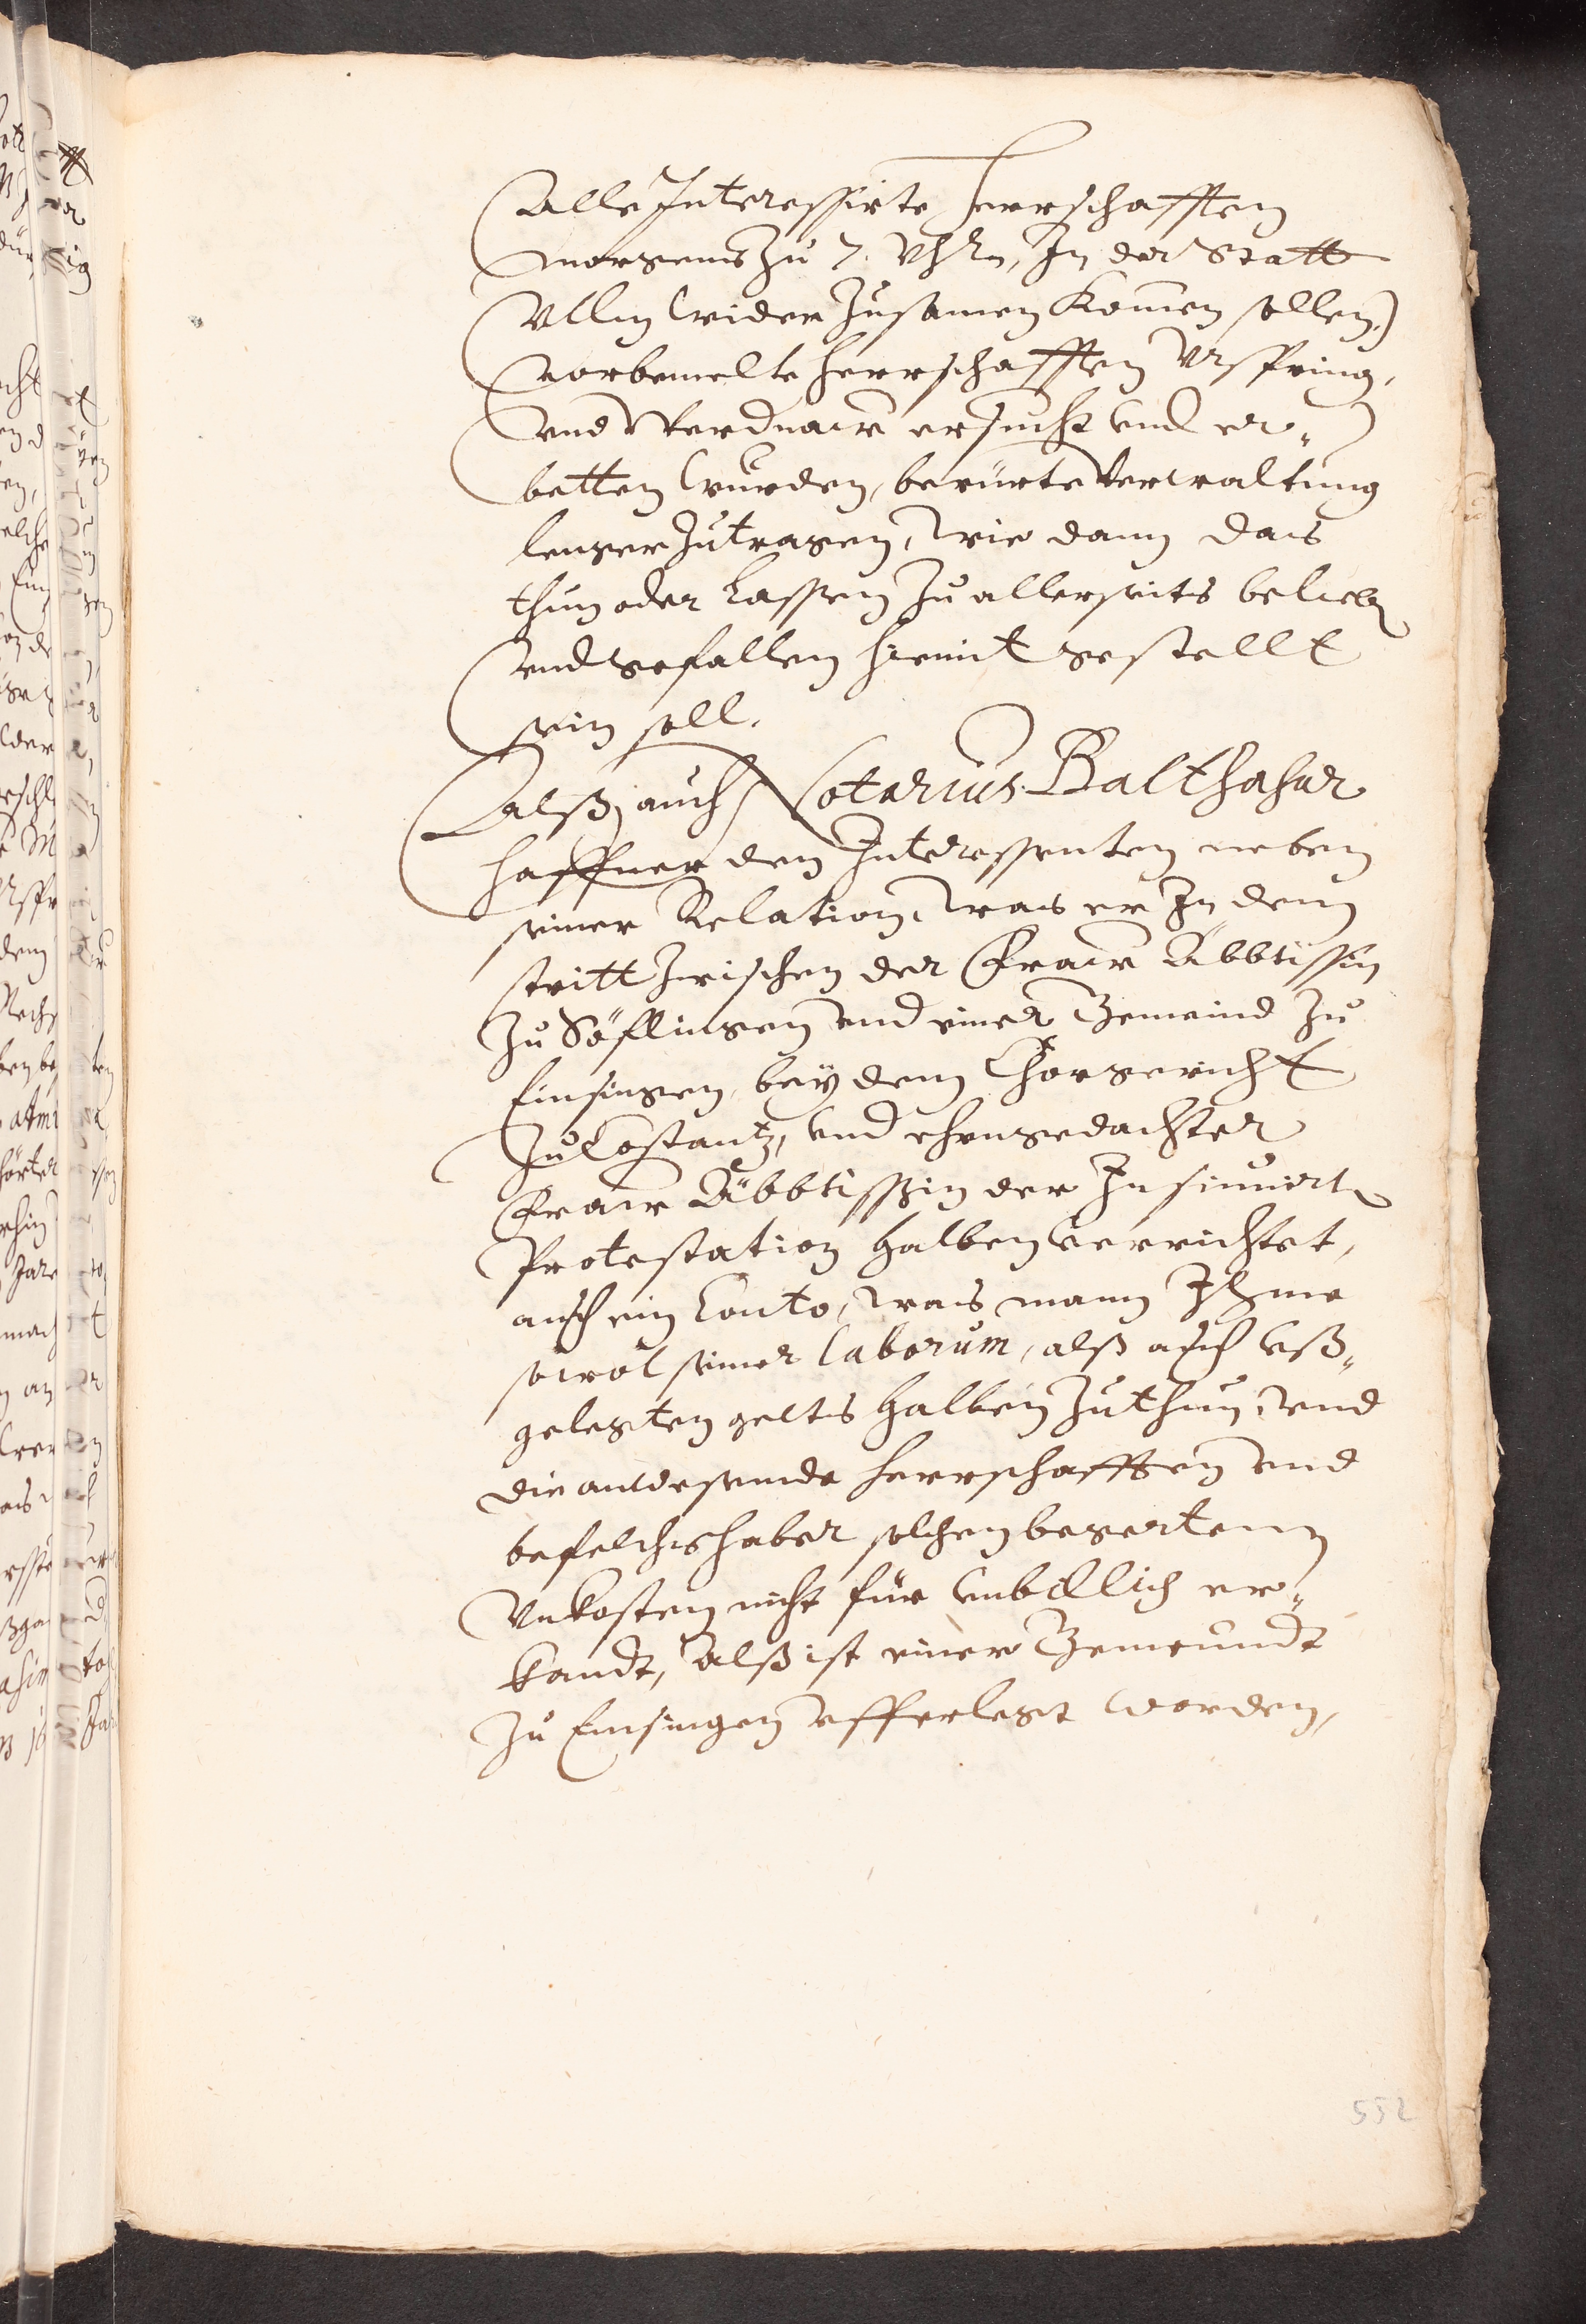 Alle Interessirte Herrschafften
morgens zu 7. Vhrn, In der Statt
Vllm wider zusamen komen sollen,)
vorbemelte herrschafften Vrspring,
vnd Werdnaw ersucht vnd er„
betten wurden, berürte Verwaltung
lenger zutragen, wie dann das
thun oder Lassen zu allerseits belieb
vnd gefallen hiemit gestellt
sein soll.
Alß auch Notarius Balthasar
Haffner den Interessenten neben
seiner Relation, was er In dem
stritt zwischen der Fraw Äbbtissin
zu Söflingen vnd einer Gemeind zu
Einsingen, bey dem Chorgericht
zu Costantz, vnd ehengedachter
Fraw Äbbtissin der Insinuirte
Protestation halben verrichtet,
auch ein Conto, was mann Ihme
sowol seiner laborum, alß auch vß„
gelegten gelts halben zuthun, vnd
die anwesende herrschafften vnd
befelchshaber solchen begertenn
Vnkosten nicht für vnbillich er„
kandt, Alß ist einer Gemeundt
zu Einsingen vfferlegt worden,
552